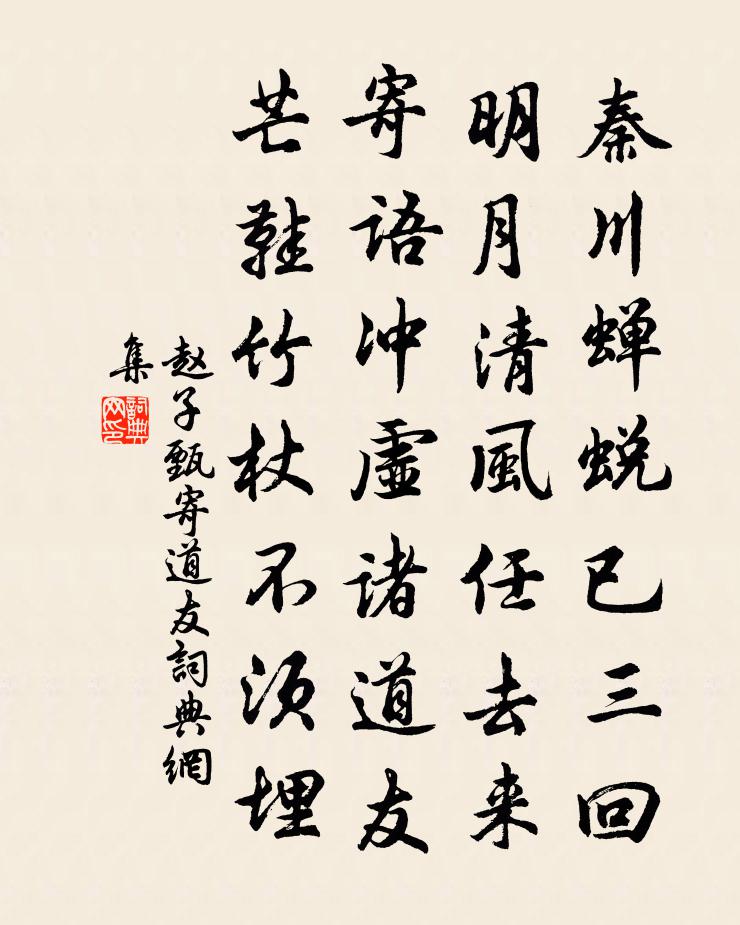 秦川蝉蜕已三回
明月清風任去来
寄语冲虚诸道友
芒鞋竹杖不须埋
赵子甄寄道友詞典網
集
詞典
网印